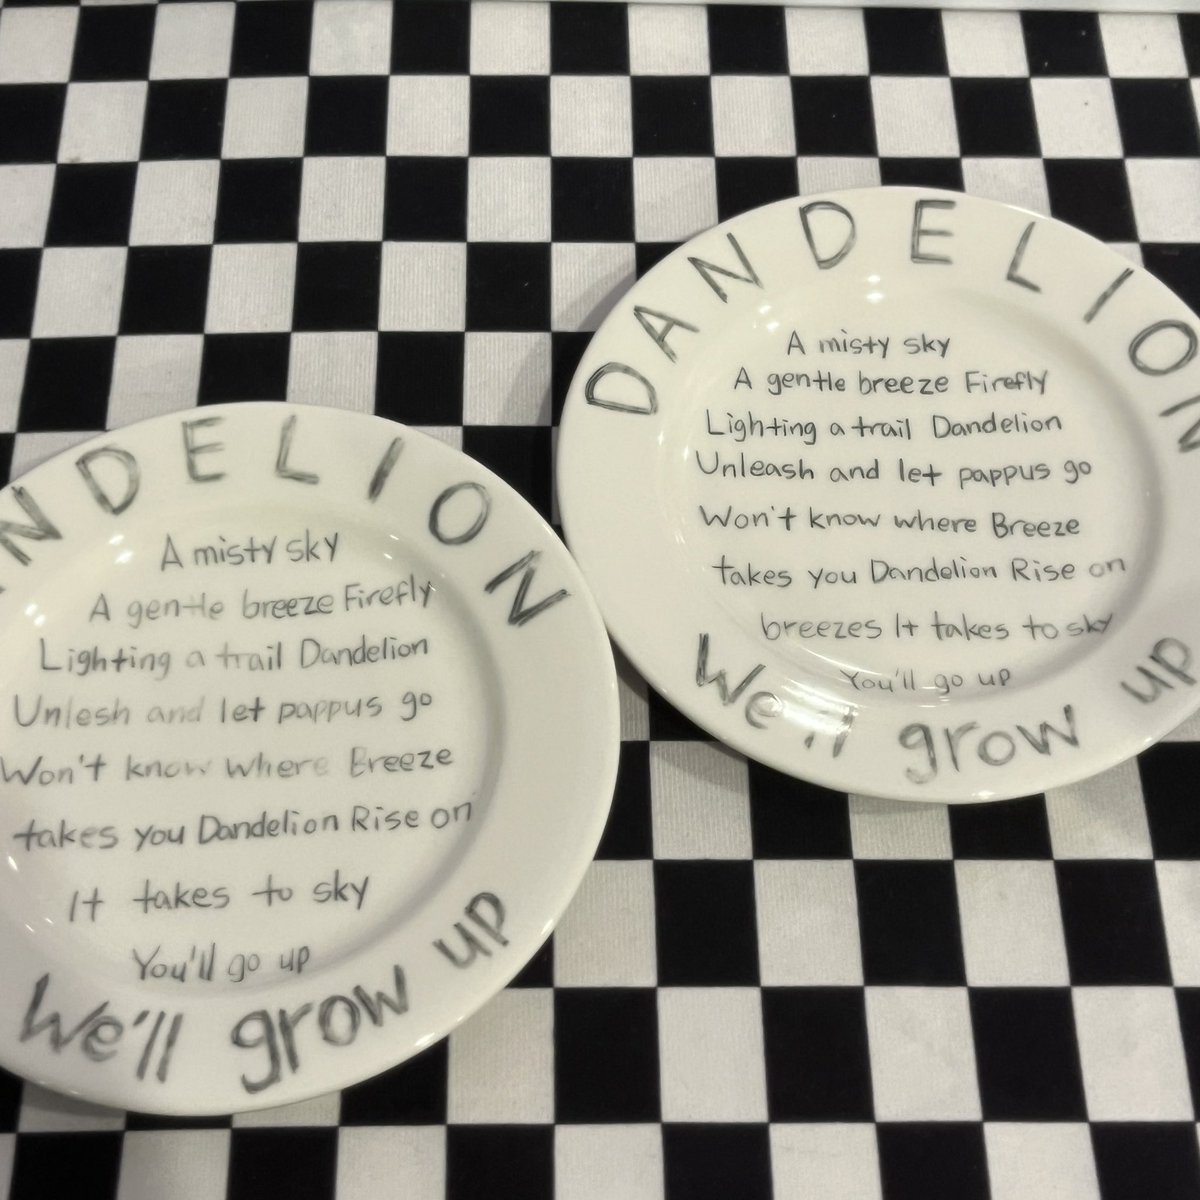 NDELION
A misty sky
A gentle breeze Firefly
Lighting a trail Dandelion
Unlesh and let pappus go
Won't know where Breeze
takes you Dandelion Rise on
It takes to sky
You'll go up
We'll grow up
DANDELION
A misty sky
A gentle breeze Firefly
Lighting a trail Dandelion
Unleash and let pappus go
Won't know where Breeze
takes you Dandelion Rise on
breezes It takes to sky
You'll go up
We'll grow up